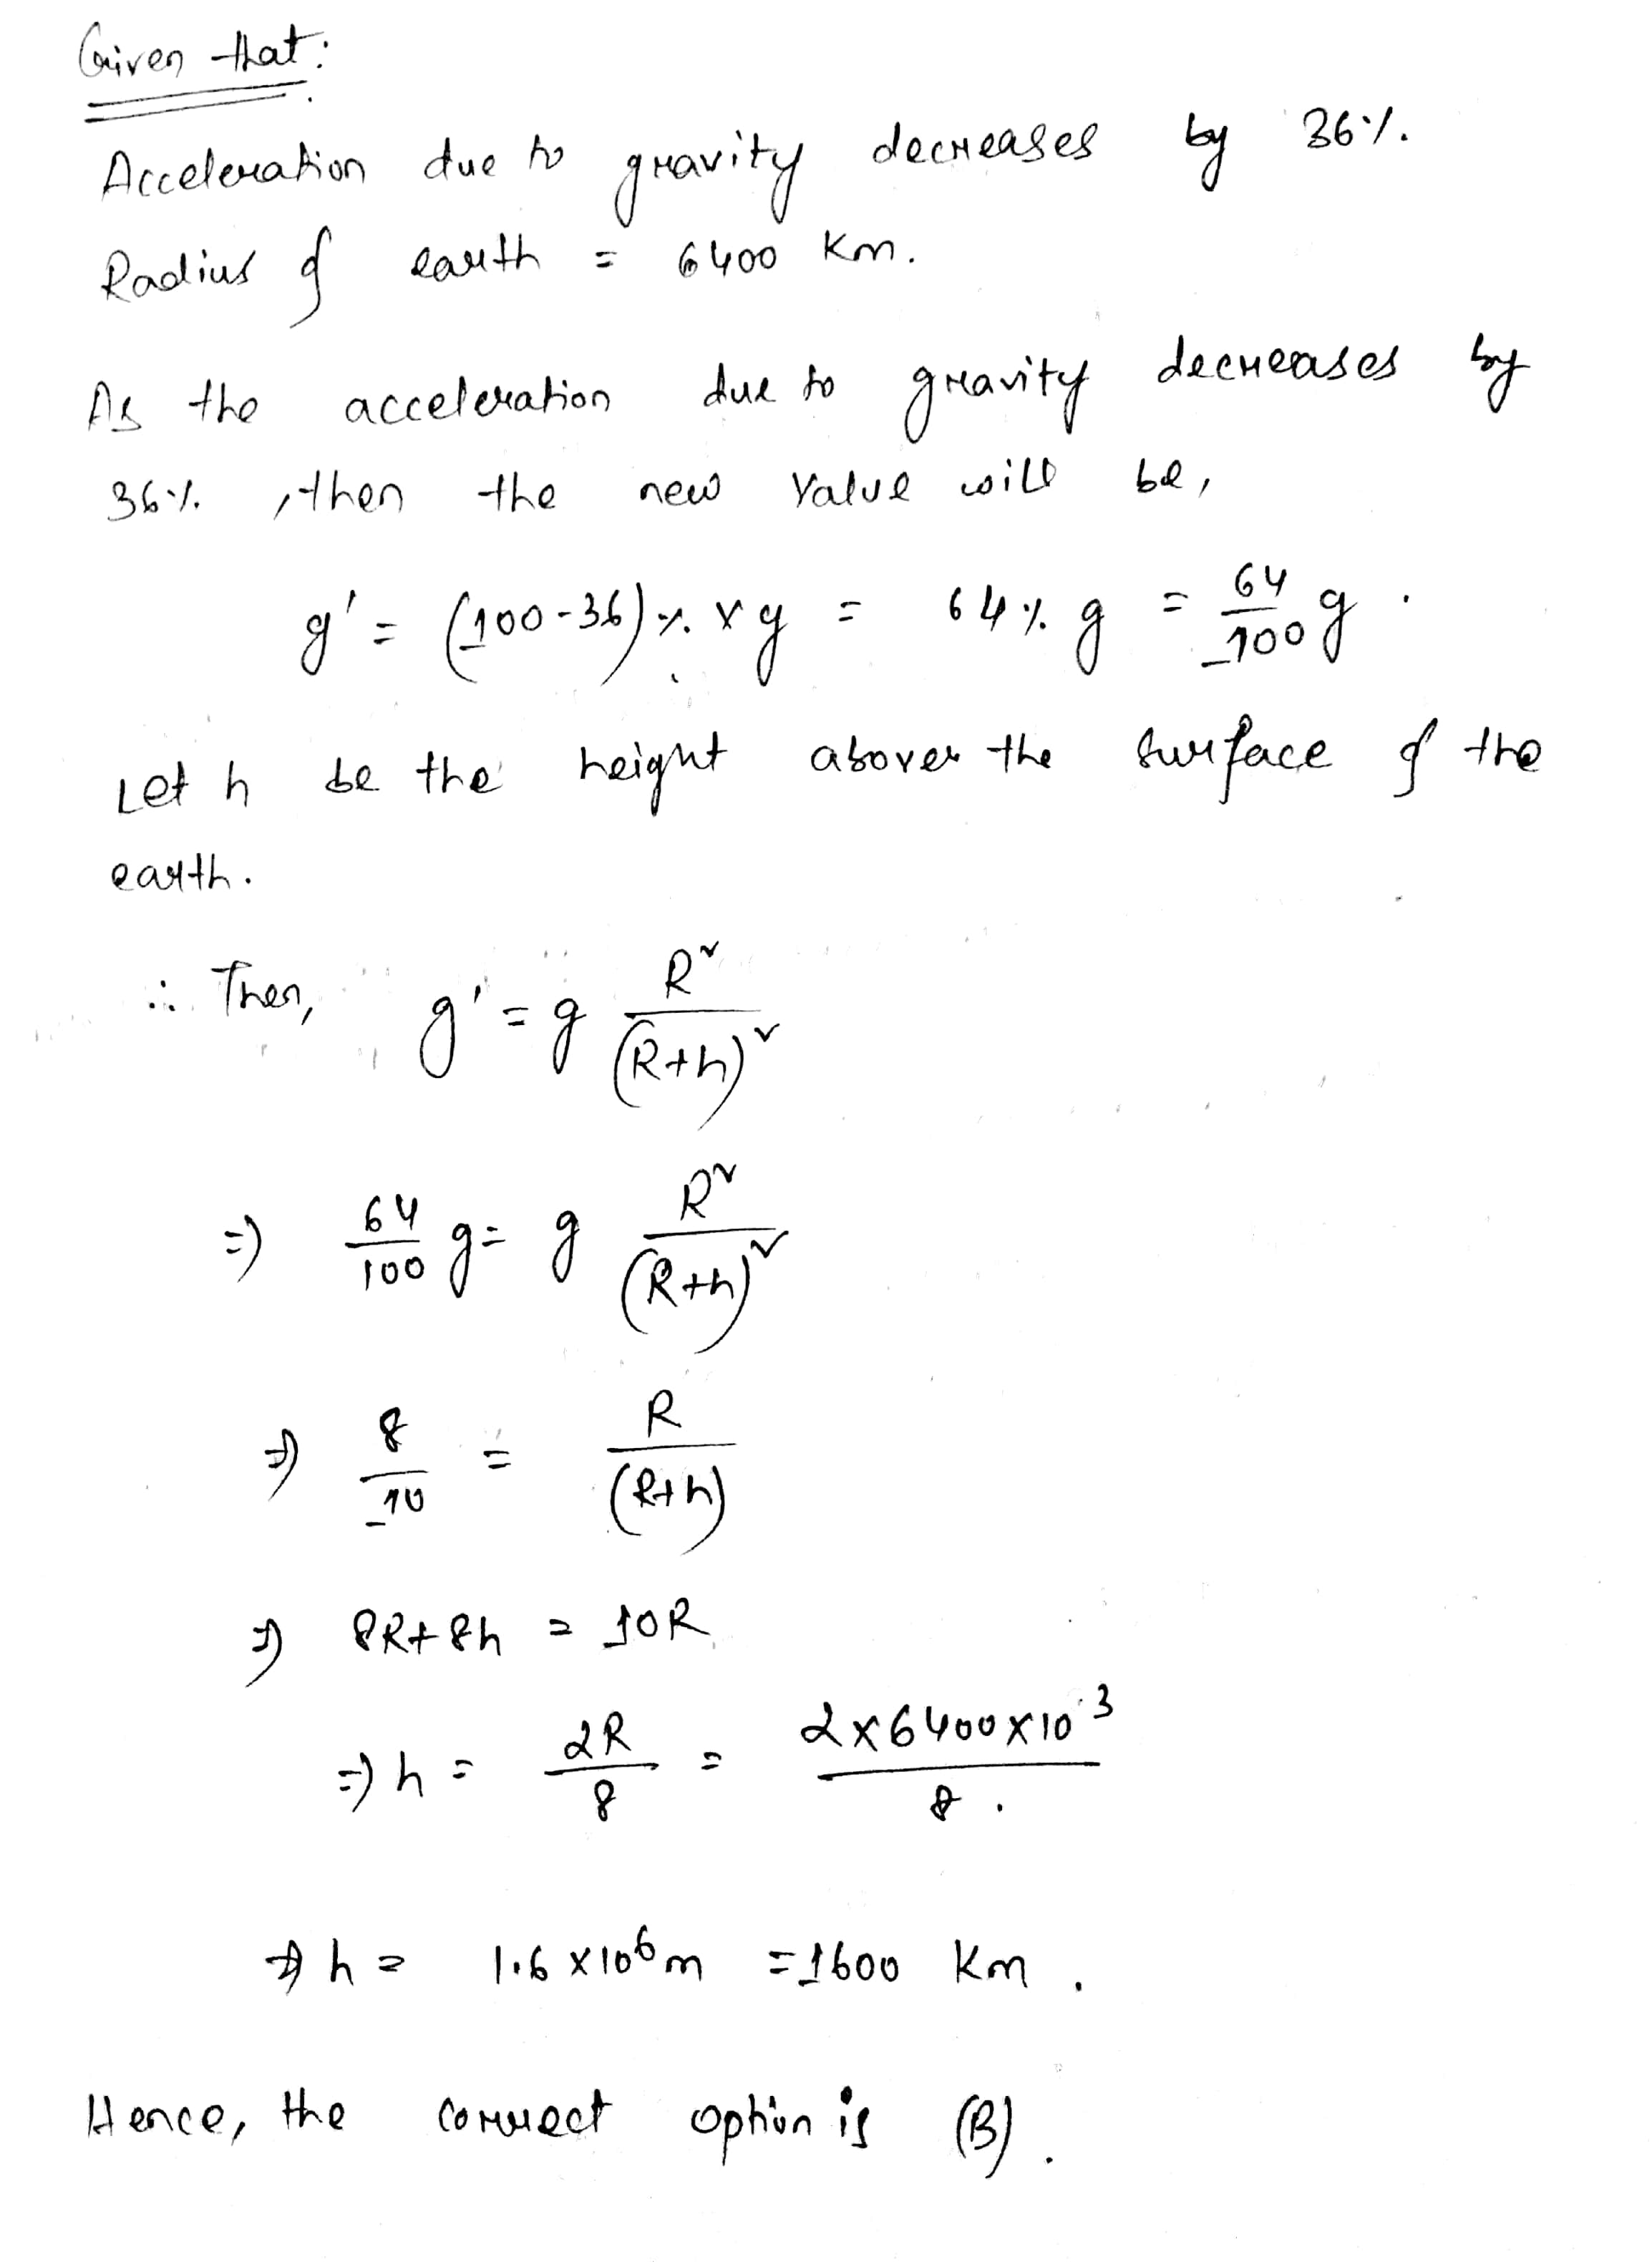 Given that:
Acceleration due to gravity decreases by 36%.
Radius of earth = 6400 Km.
As the acceleration due to gravity decreases by
36%, then the new value will be,
g' = (100-36)% × g = 64% g = 64/100 g.
Let h be the height above the surface of the
earth.
∴ Then, g' = g R²/(R+h)²
⇒ 64/100 g = g R²/(R+h)²
⇒ 8/10 = R/(R+h)
⇒ 8R+8h = 10R
⇒ h = 2R/8 = 2×6400×10³/8.
⇒ h = 1.6×10⁶m = 1600 Km.
Hence, the correct option is (B).